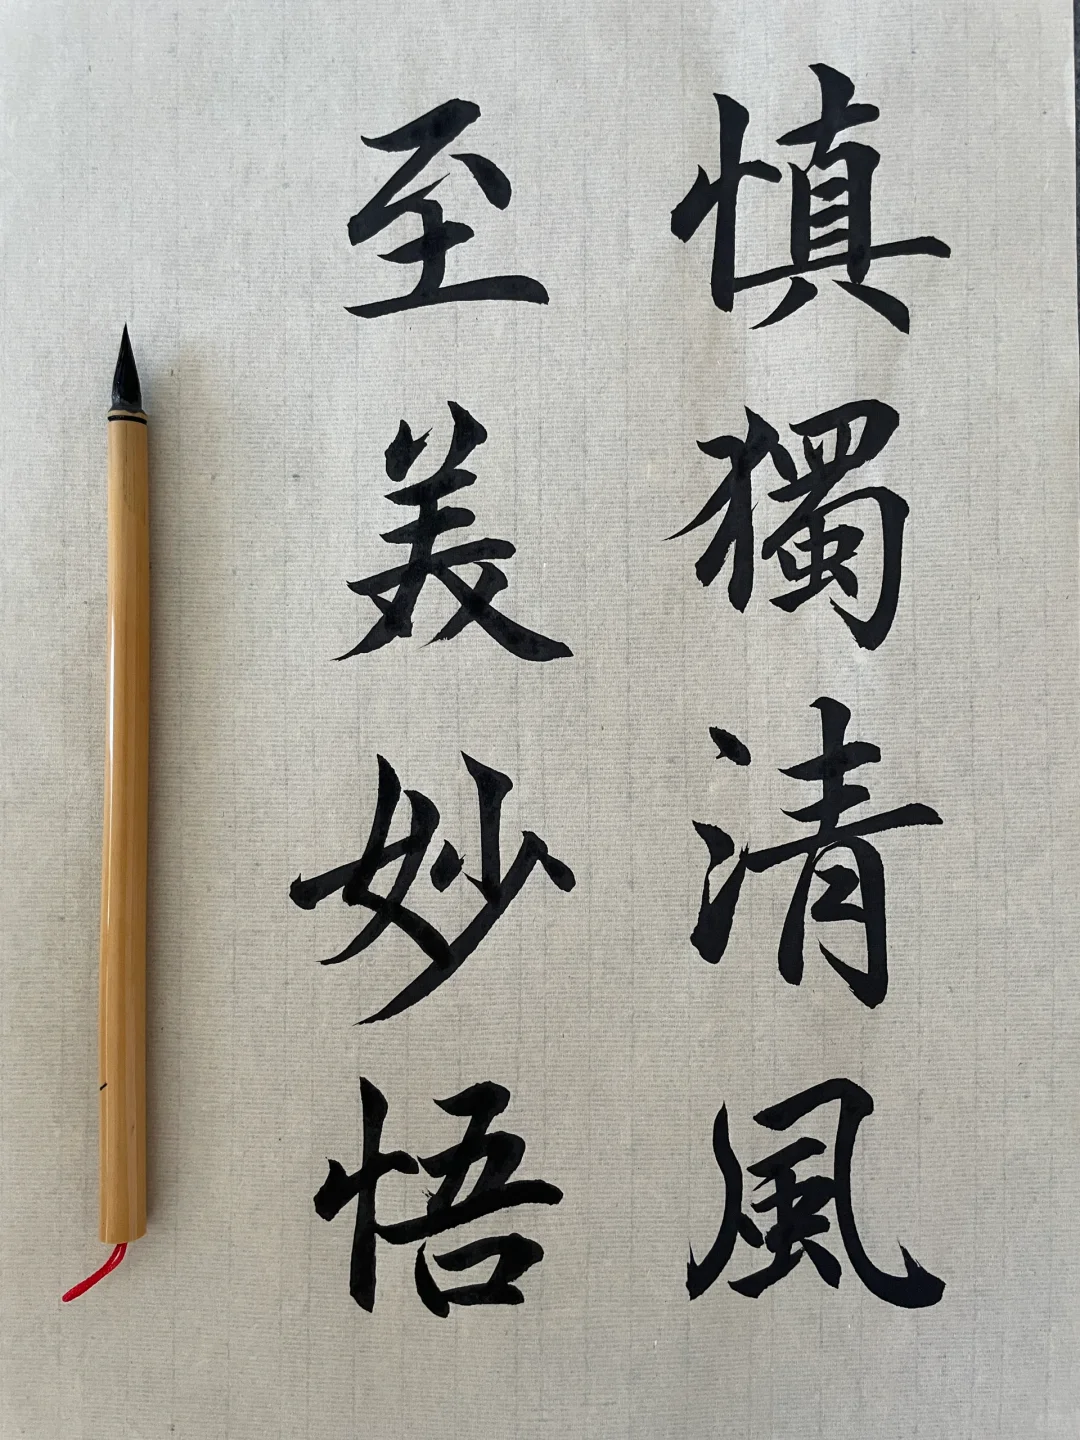 慎獨清風
至美妙悟